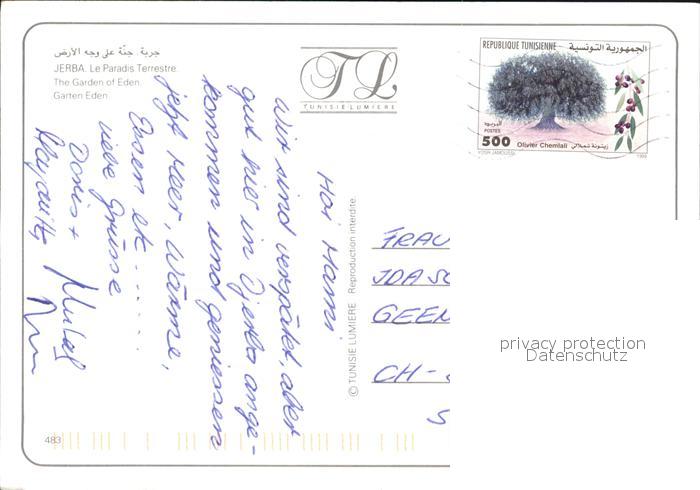 جربة. جنّة على وجه الأرض
JERBA. Le Paradis Terrestre.
The Garden of Eden.
Garten Eden.
TL
TUNISIE-LUMIERE
REPUBLIQUE TUNISIENNE الجمهورية التونسية
البريد
POSTES
500 Olivier Chemlali زيتونة شملالي
YOSR JAMOUSSI
Hoi Mami
Wir sind verspätet, aber
gut hier in Djerba ange-
kommen und geniessen
jetzt Meer, Wärme,
Essen etc......
Liebe Grüsse
Doris +
© TUNISIE LUMIERE Reproduction interdite.
FRAU
JDA
GEEN
CH-
S
privacy protection
Datenschutz
483